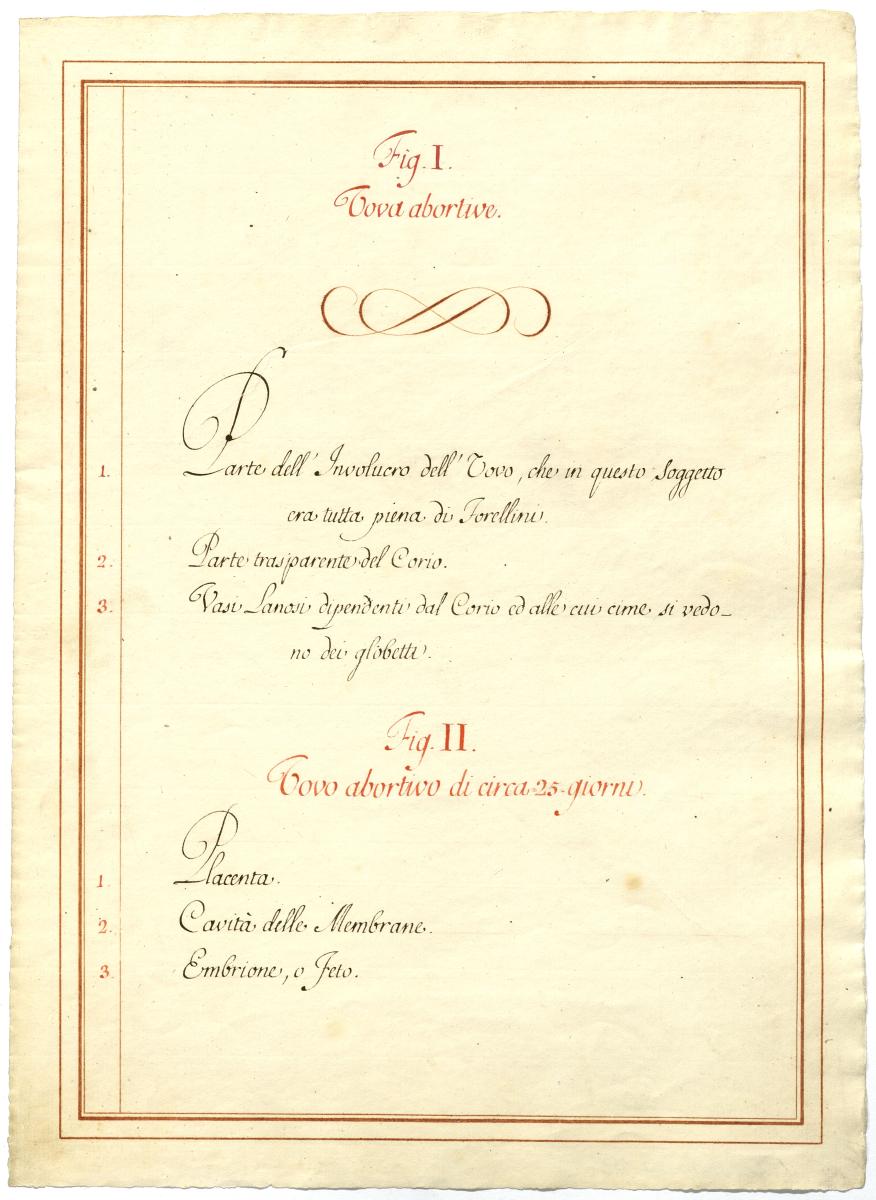 Fig. I.
Uova abortive.
1. Parte dell' Involucro dell' Uovo, che in questo Soggetto
era tutta piena di Forellini.
2. Parte trasparente del Corio.
3. Vasi Lanosi dipendenti dal Corio ed alle cui cime si vedo-
no dei globetti.
Fig. II.
Uovo abortivo di circa 25 giorni.
1. Placenta.
2. Cavità delle Membrane.
3. Embrione, o Feto.